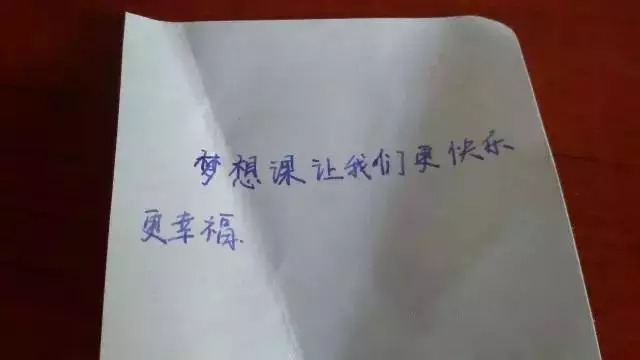 梦想课让我们更快乐
更幸福.